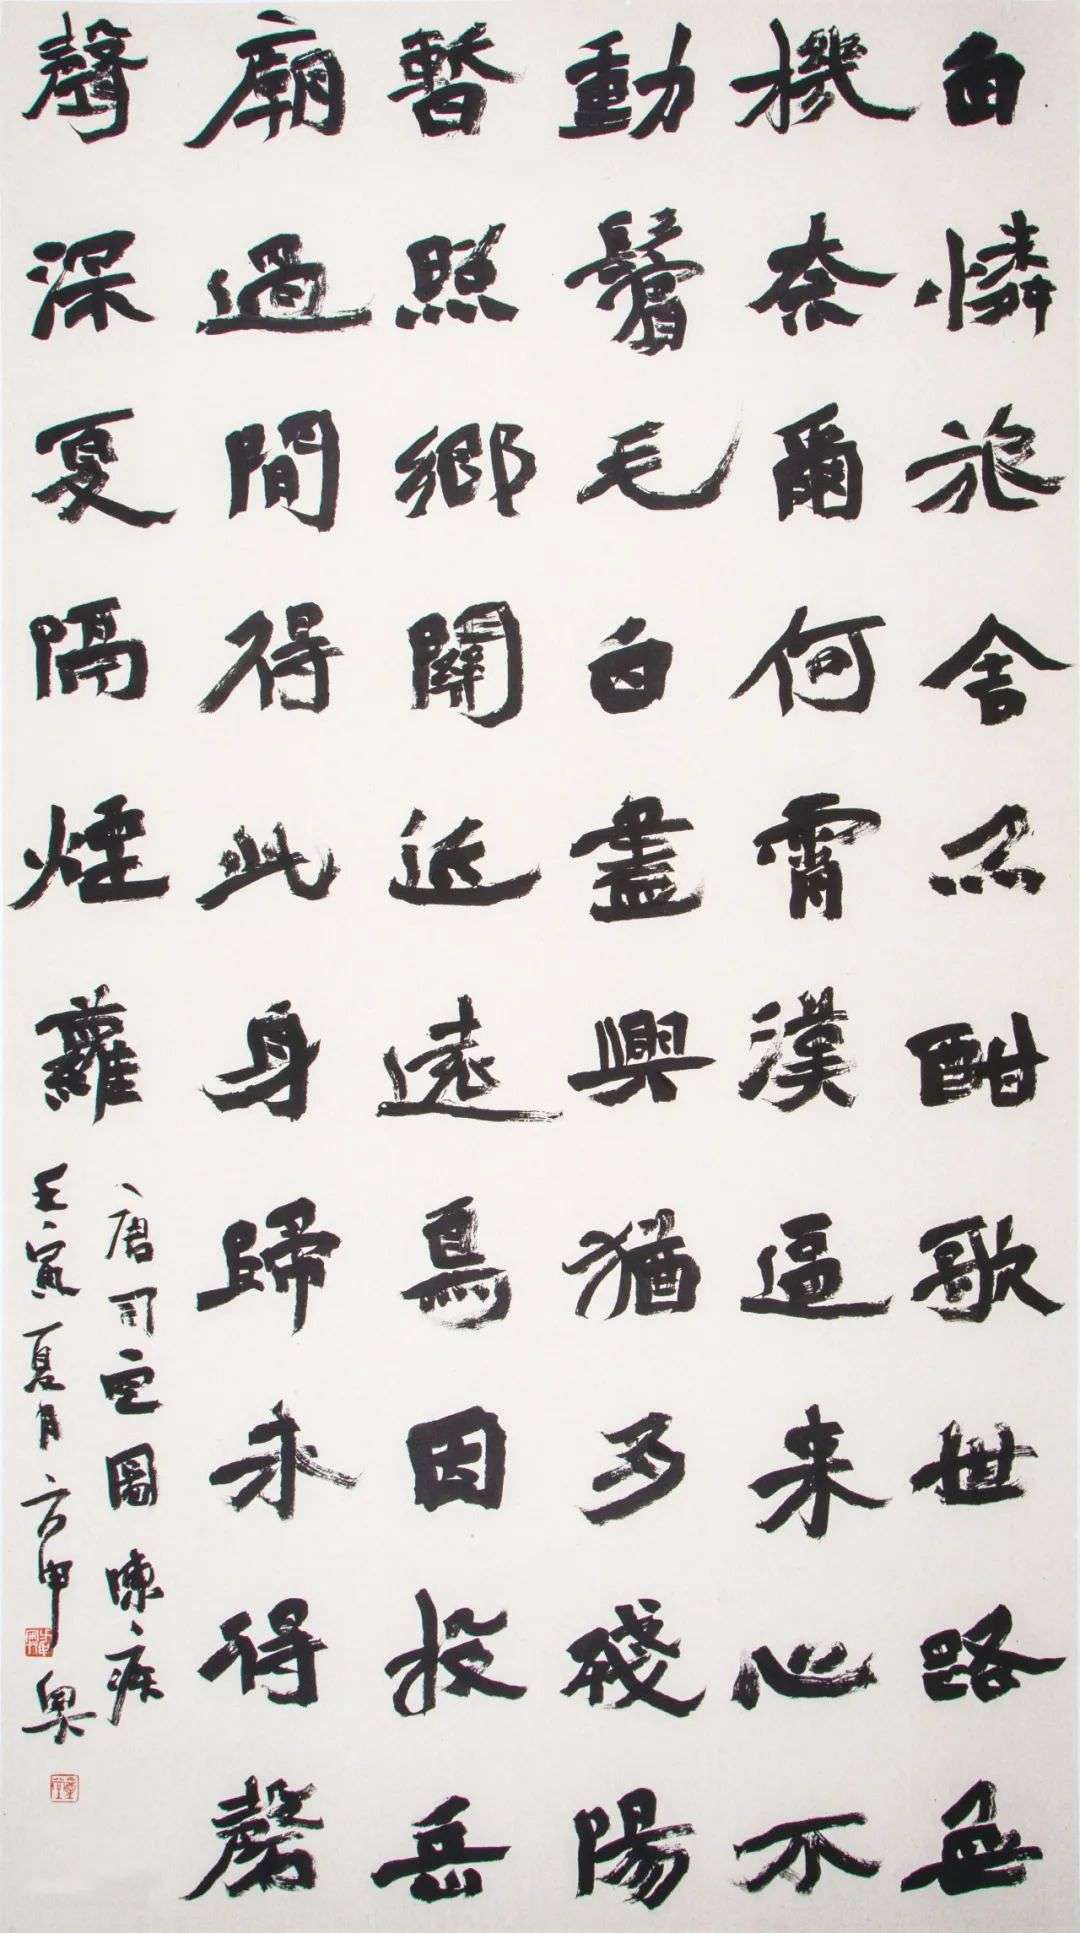 自憐旅舍亦酣歌世路無
機奈爾何霄漢逼来心不
動鬢毛白盡興猶多殘陽
暫照鄉關近遠鳥因投岳
廟過間得此身歸未得磬
聲深夏隔煙蘿
唐司空圖陳疾
壬寅夏月方申